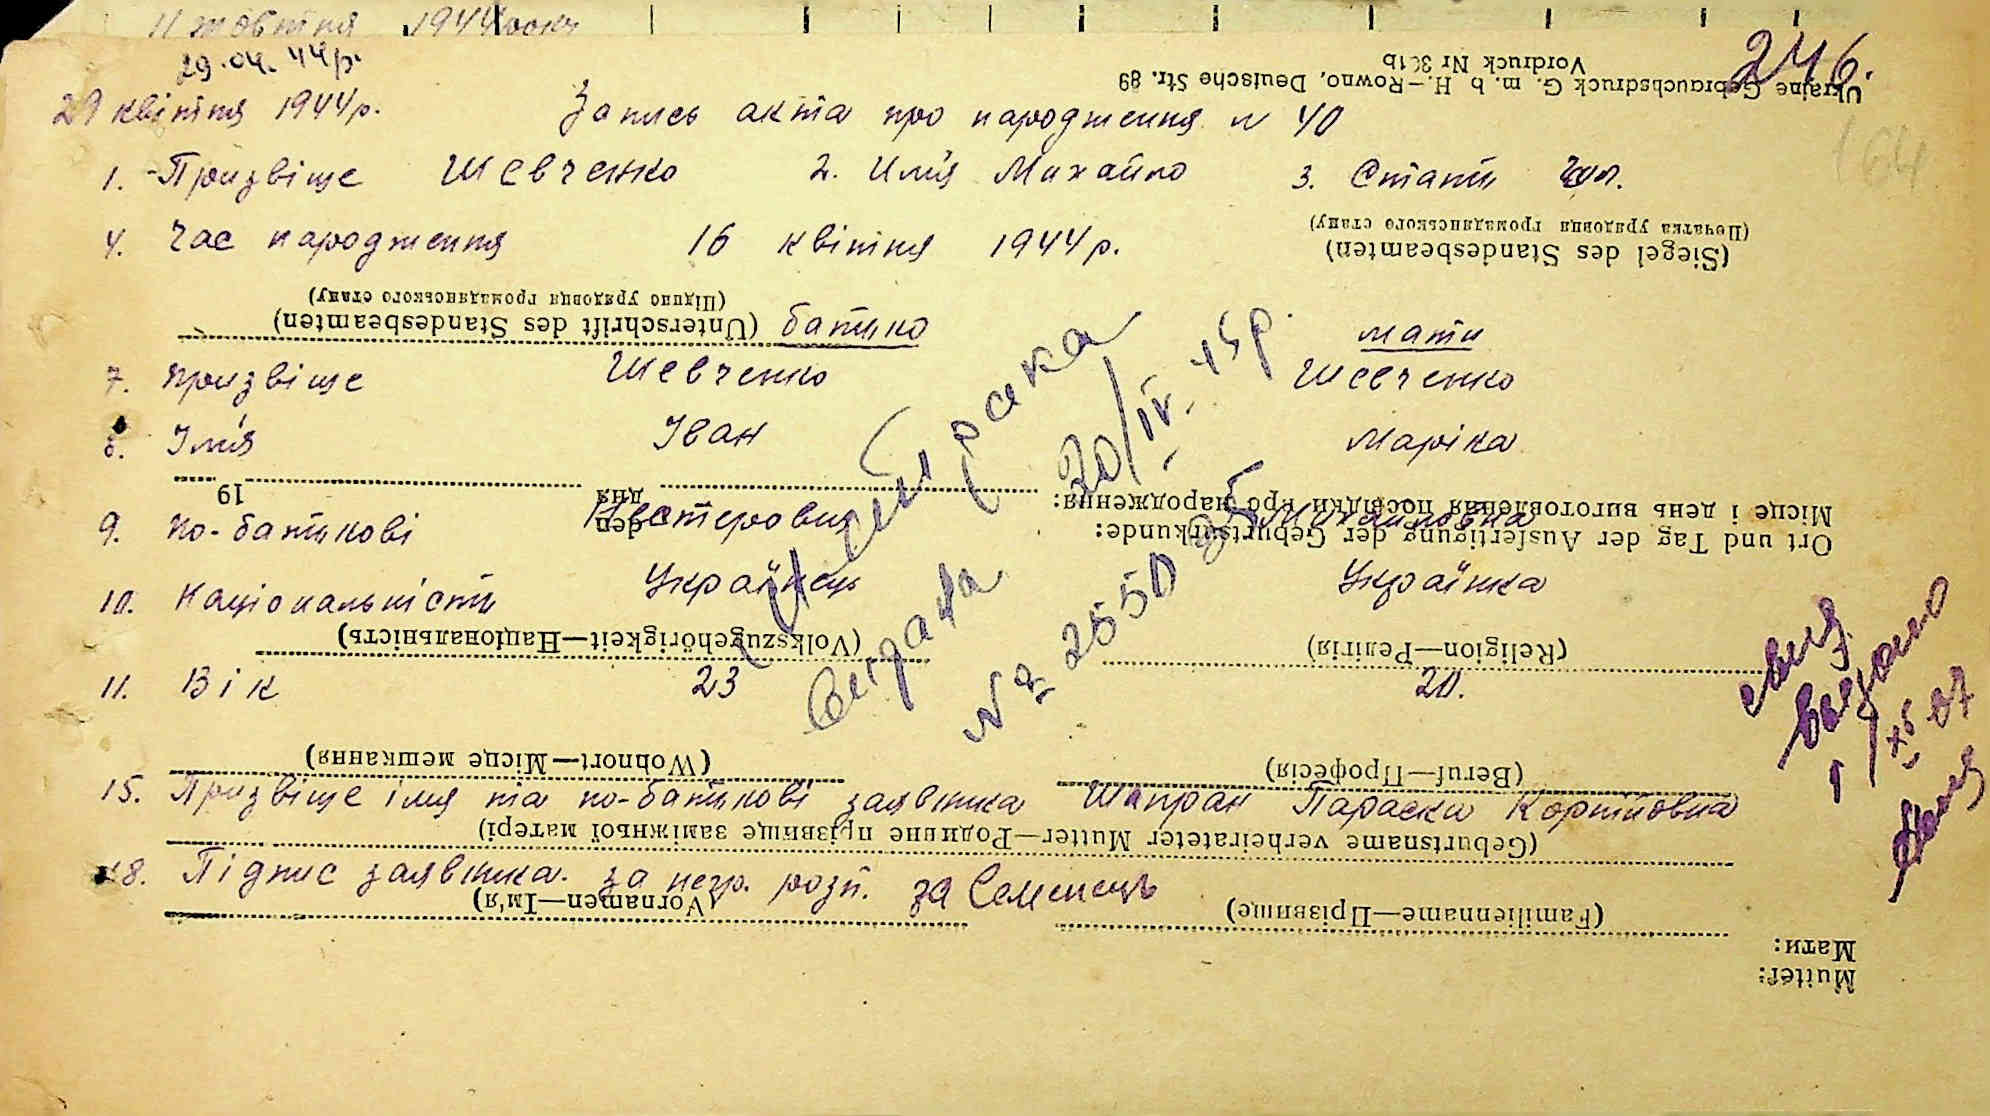 11 жовтня 1944 року
29.04.44р.
246.
29 квітня 1944р. Запись акта про народження № 40
164
1. Призвіще Шевченко 2. Имя Михайло 3. Стать чол.
4. Час народження 16 квітня 1944р.
батько мати
7. Призвіще Шевченко Шевченко
8. Імя Іван Маріка
9. По-батькові Нестерович Михайловна
10. Національність Українець Українка
11. Вік 23 20.
15. Призвіще імя та по-батькові заявника Шапран Параска Корніївна
18. Підпис заявника. за негр. розп. за Семенець
Видана
№ 2550
20/IV. 45р.
Ukraine Gebrauchsdruck G. m. b. H.—Rowno, Deutsche Str. 89
Vordruck Nr 361b
Mutter:
Мати:
(Familienname—Прізвище) (Vornamen—Ім'я)
(Geburtsname verheirateter Mutter—Родинне прізвище заміжньої матері)
(Beruf—Професія) (Wohnort—Місце мешкання)
(Religion—Релігія) (Volkszugehörigkeit—Національність)
Ort und Tag der Ausfertigung der Geburtsurkunde: den
Місце і день виготовлення посвідки про народження: дня 19
(Unterschrift des Standesbeamten)
(Підпис урядовця громадянського стану)
(Siegel des Standesbeamten)
(Печатка урядовця громадянського стану)